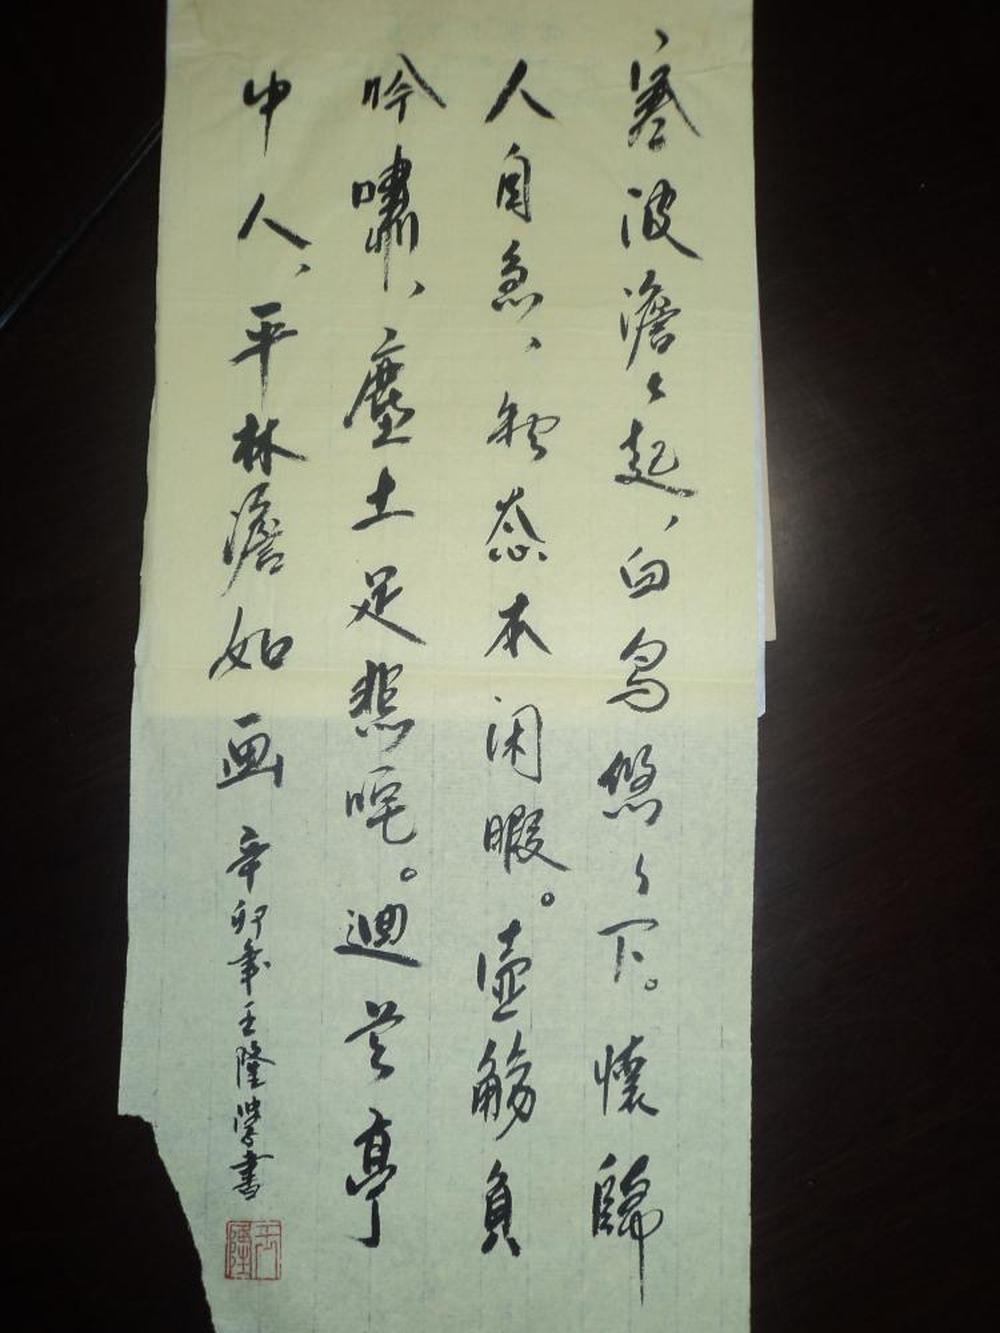 寒波澹々起，白鸟悠々下。懷歸
人自急，物态本闲暇。壶觞負
吟嘯，塵土足悲咤。迴首亭
中人，平林澹如画
辛卯年王隆學書